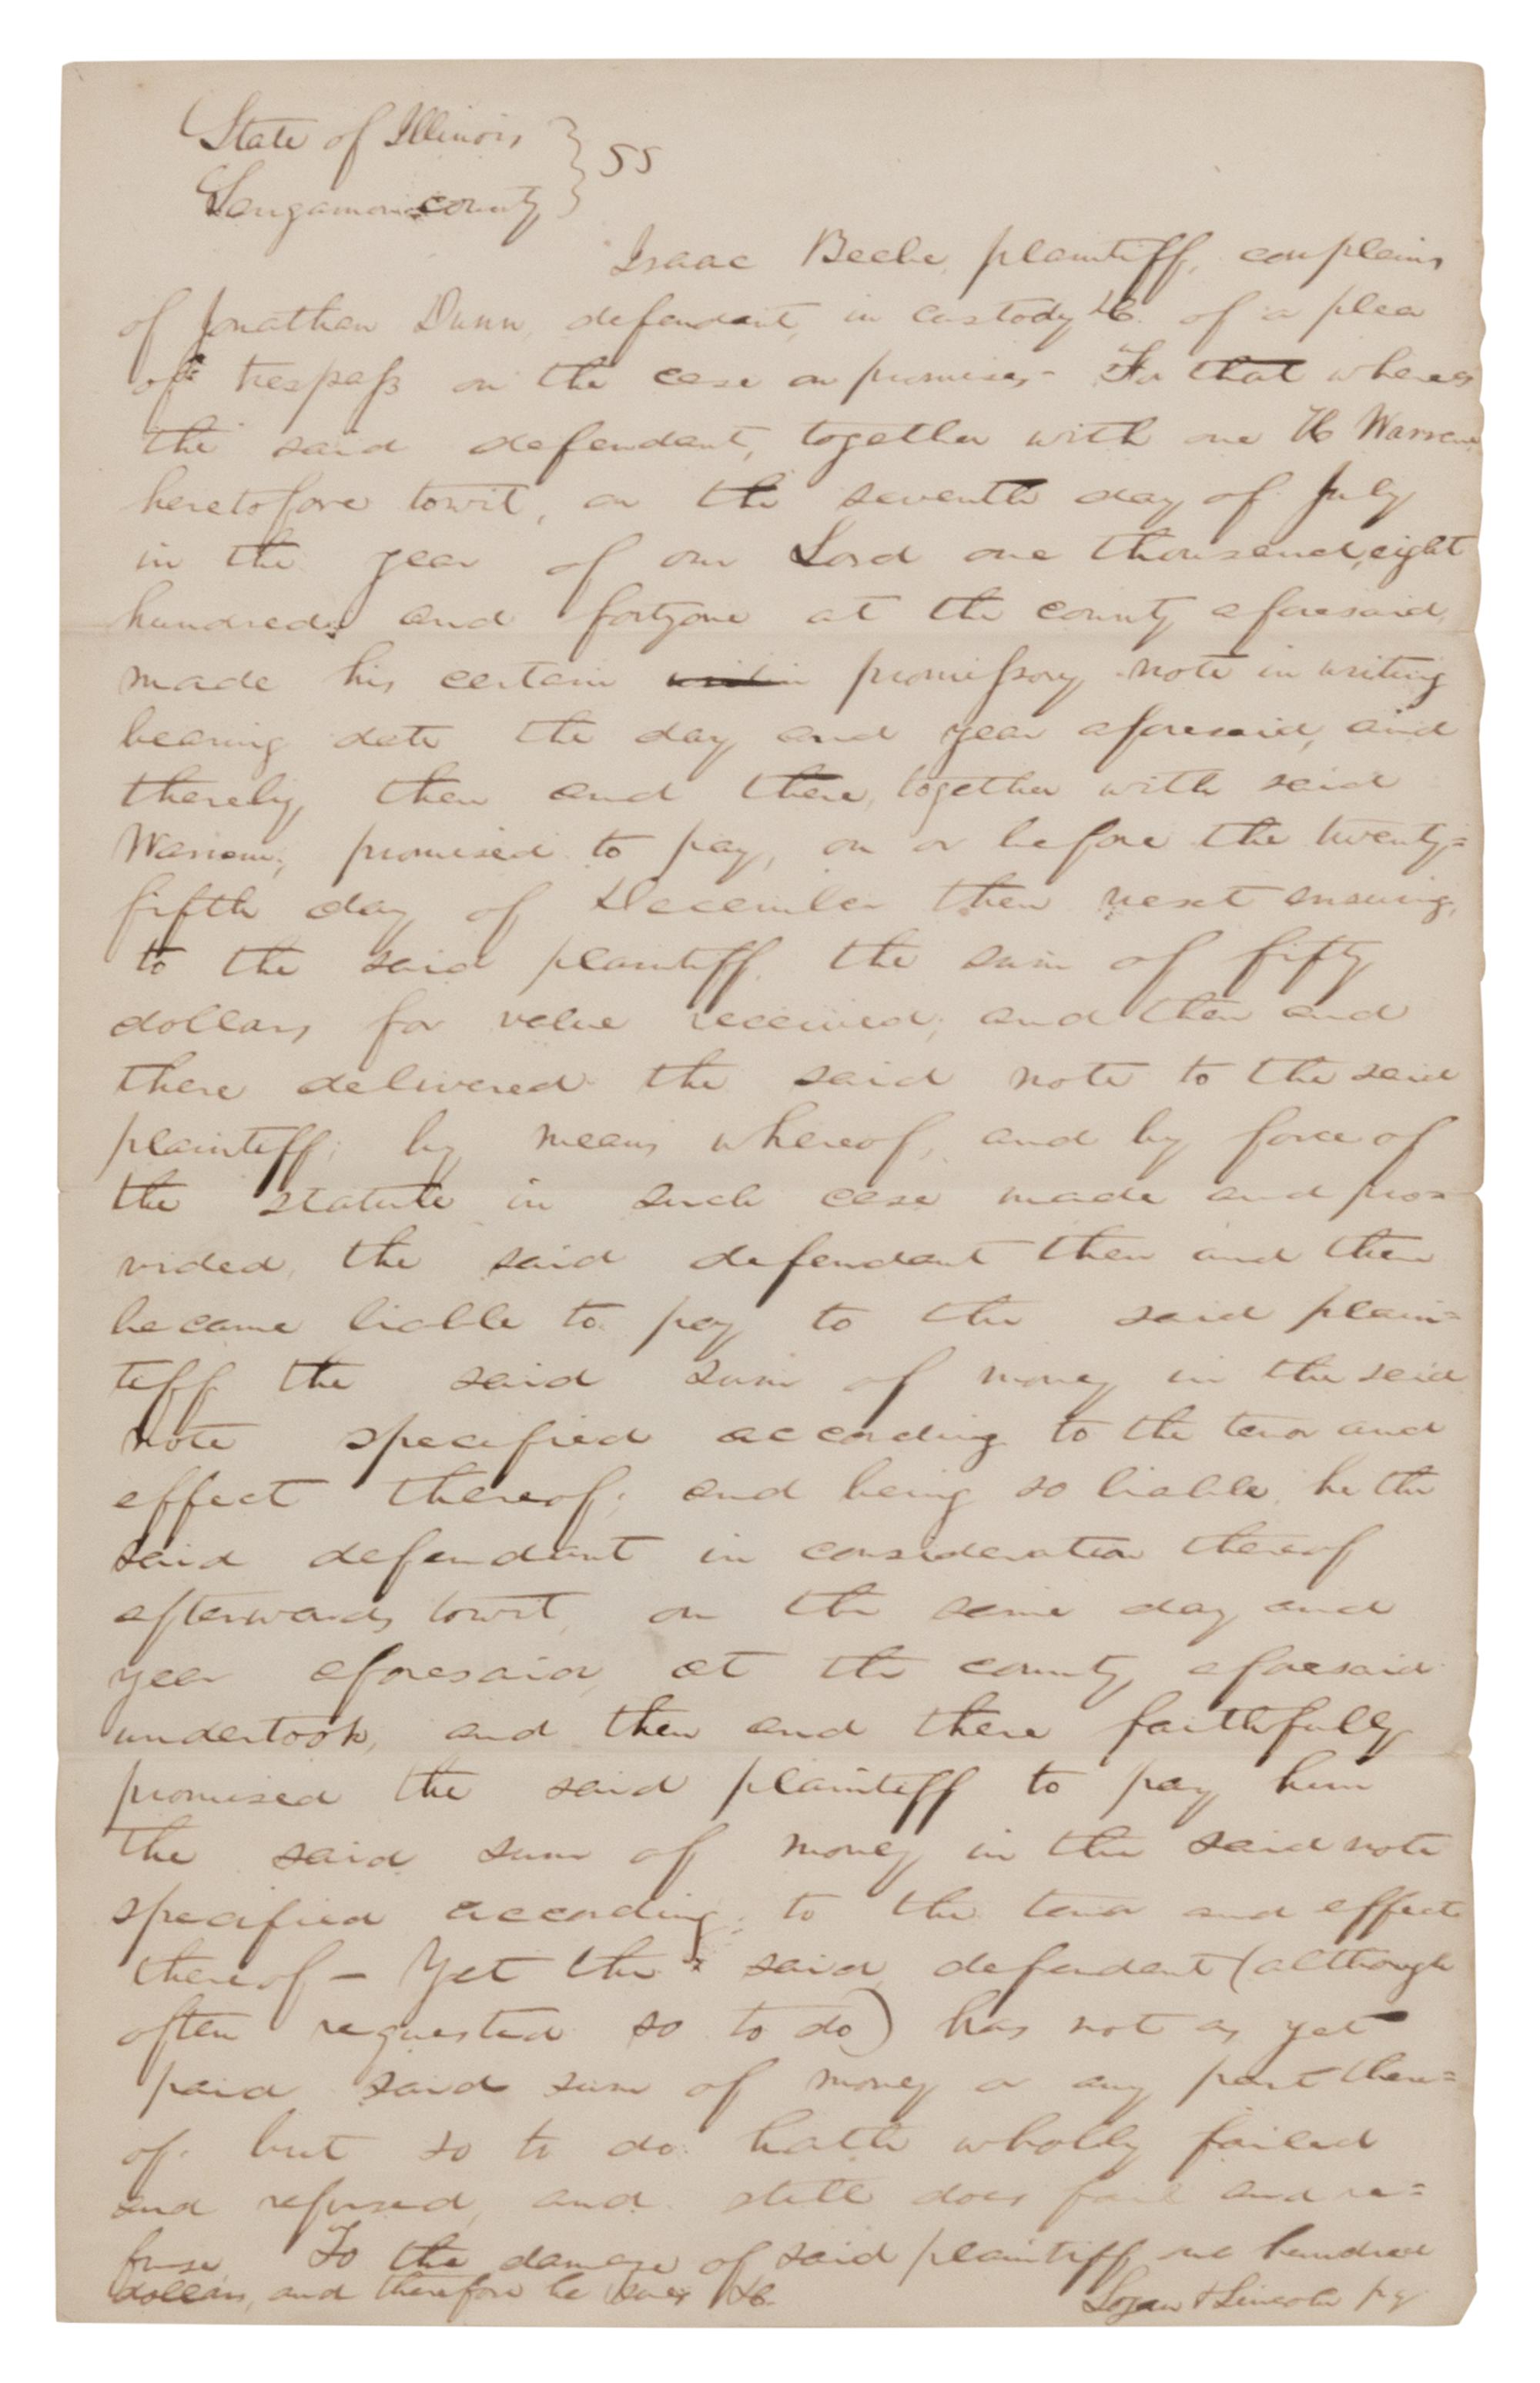 State of Illinois } SS
Sangamon county }
Isaac Beebe, plaintiff, complains
of Jonathan Dunn, defendant, in custody &c. of a plea
of trespass on the case on promises - For that whereas
the said defendant, together with one
heretofore towit, on the seventh day of July
in the year of our Lord one thousand, eight
hundred and fortyone at the county aforesaid,
made his certain promissory note in writing
bearing date the day and year aforesaid, and
thereby, then and there, together with said
promised to pay, on or before the twenty=
fifth day of December then next ensuing,
to the said plaintiff, the sum of fifty
dollars for value received; and then and
there delivered the said note to the said
plaintiff; by means whereof, and by force of
the statute in such case made and pro=
vided, the said defendant then and there
became liable to pay to the said plain=
tiff the said sum of money in the said
note specified according to the tenor and
effect thereof; and being so liable, he the
said defendant in consideration thereof
afterwards, towit, on the same day and
year aforesaid, at the county aforesaid
undertook, and then and there faithfully
promised the said plaintiff to pay him
the said sum of money in the said note
specified according to the tenor and effect
thereof - Yet the said defendant (although
often requested so to do) has not as yet
paid said sum of money or any part there=
of. but so to do hath wholly failed
and refused, and still does fail and re=
fuse. To the damage of said plaintiff one hundred
dollars, and therefore he sues &c.
Logan & Lincoln p.q.